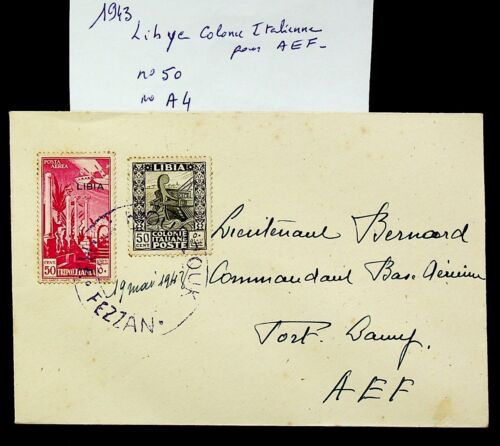 1943
Libye Colonie Italienne
pour AEF-
n° 50
no A4
POSTA AEREA
LIBIA
CENT. 50 TRIPOLITANIA
LIBIA
50 COLONIE ITALIANE
CENT POSTE
19 mar 1943
FEZZAN
Lieutenant Bernard
Commandant Base Aérienne
Fort Lamy.
AEF